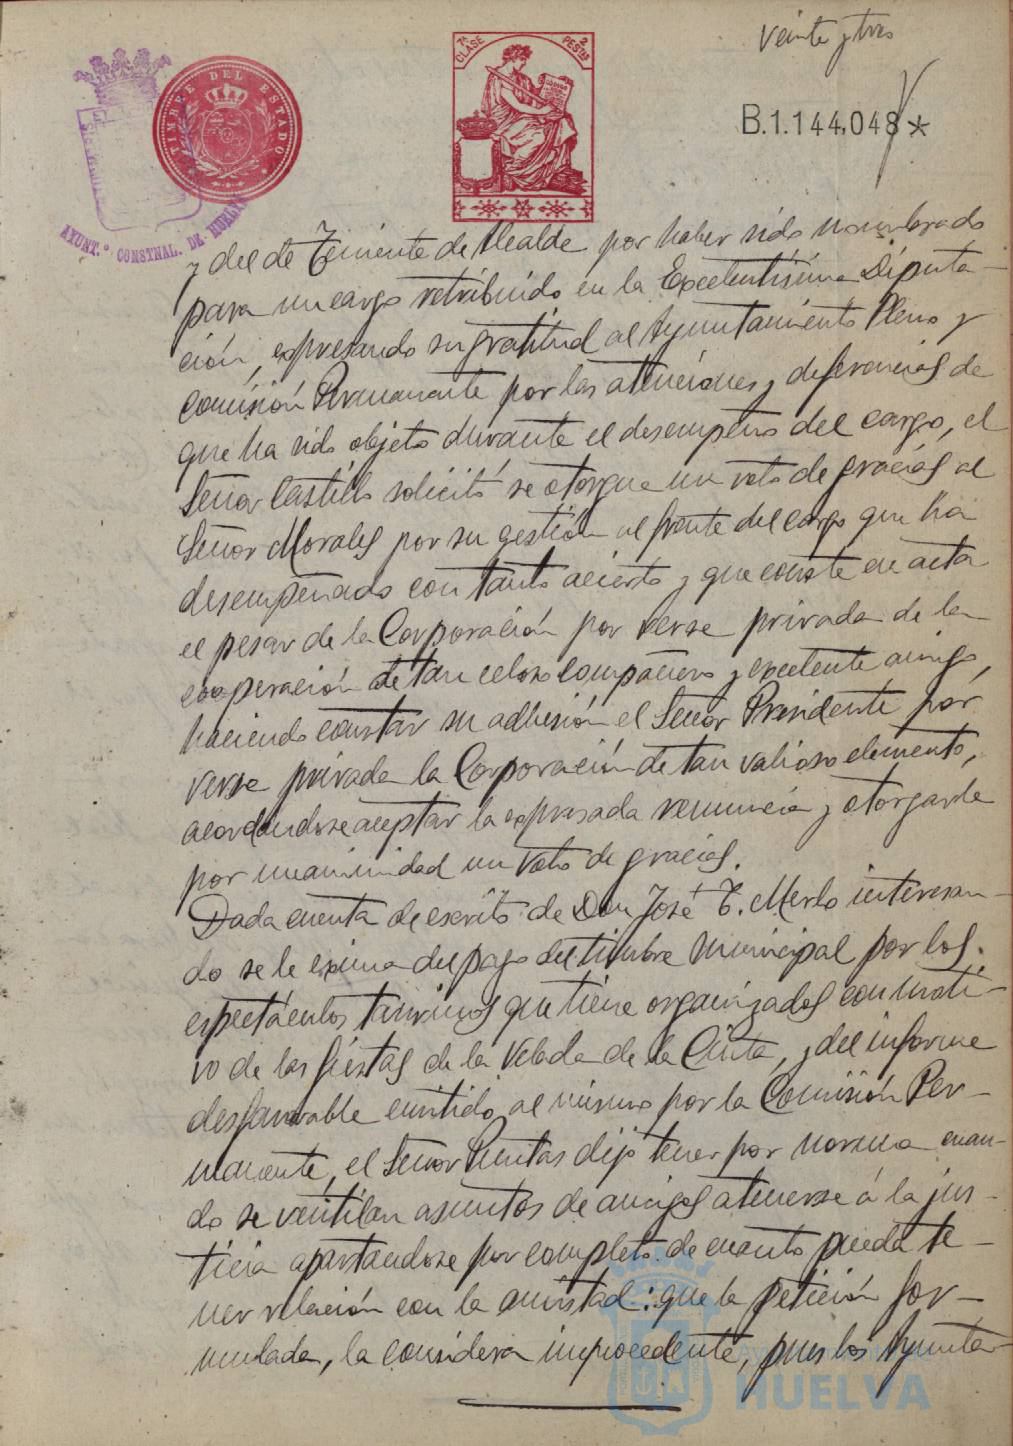 veinte y tres
7ª CLASE
2 PESTAS
TIMBRE DEL ESTADO
B.1.144,048*
AYUNT.º CONSTNAL. DE HUELVA
y del de Teniente de Alcalde por haber sido nombrado
para un cargo retribuido en la Excelentísima Diputa-
ción, expresando su gratitud al Ayuntamiento Pleno y
Comisión Permanente por las atenciones y deferencias de
que ha sido objeto durante el desempeño del cargo, el
Señor Castillo solicitó se otorgue un voto de gracias al
Señor Morales por su gestión al frente del cargo que ha
desempeñado con tanto acierto y que conste en acta
el pesar de la Corporación por verse privada de la
cooperación de tan celoso compañero y excelente amigo,
haciendo constar su adhesión el Señor Presidente por
verse privada la Corporación de tan valioso elemento,
acordándose aceptar la expresada renuncia y otorgarle
por unanimidad un voto de gracias.
Dada cuenta de escrito de Don José T. Merlo interesan-
do se le exima del pago del timbre municipal por los
espectáculos taurinos que tiene organizados con moti-
vo de las fiestas de la Velada de la Cinta, y del informe
desfavorable emitido al mismo por la Comisión Per-
manente, el Señor Puntas dijo tener por norma cuan-
do se ventilan asuntos de amigos atenerse á la jus-
ticia apartandose por completo de cuanto pueda te-
ner relación con la amistad: que la petición for-
mulada, la considera improcedente, pues los Ayunta-
Ayuntamiento de
HUELVA